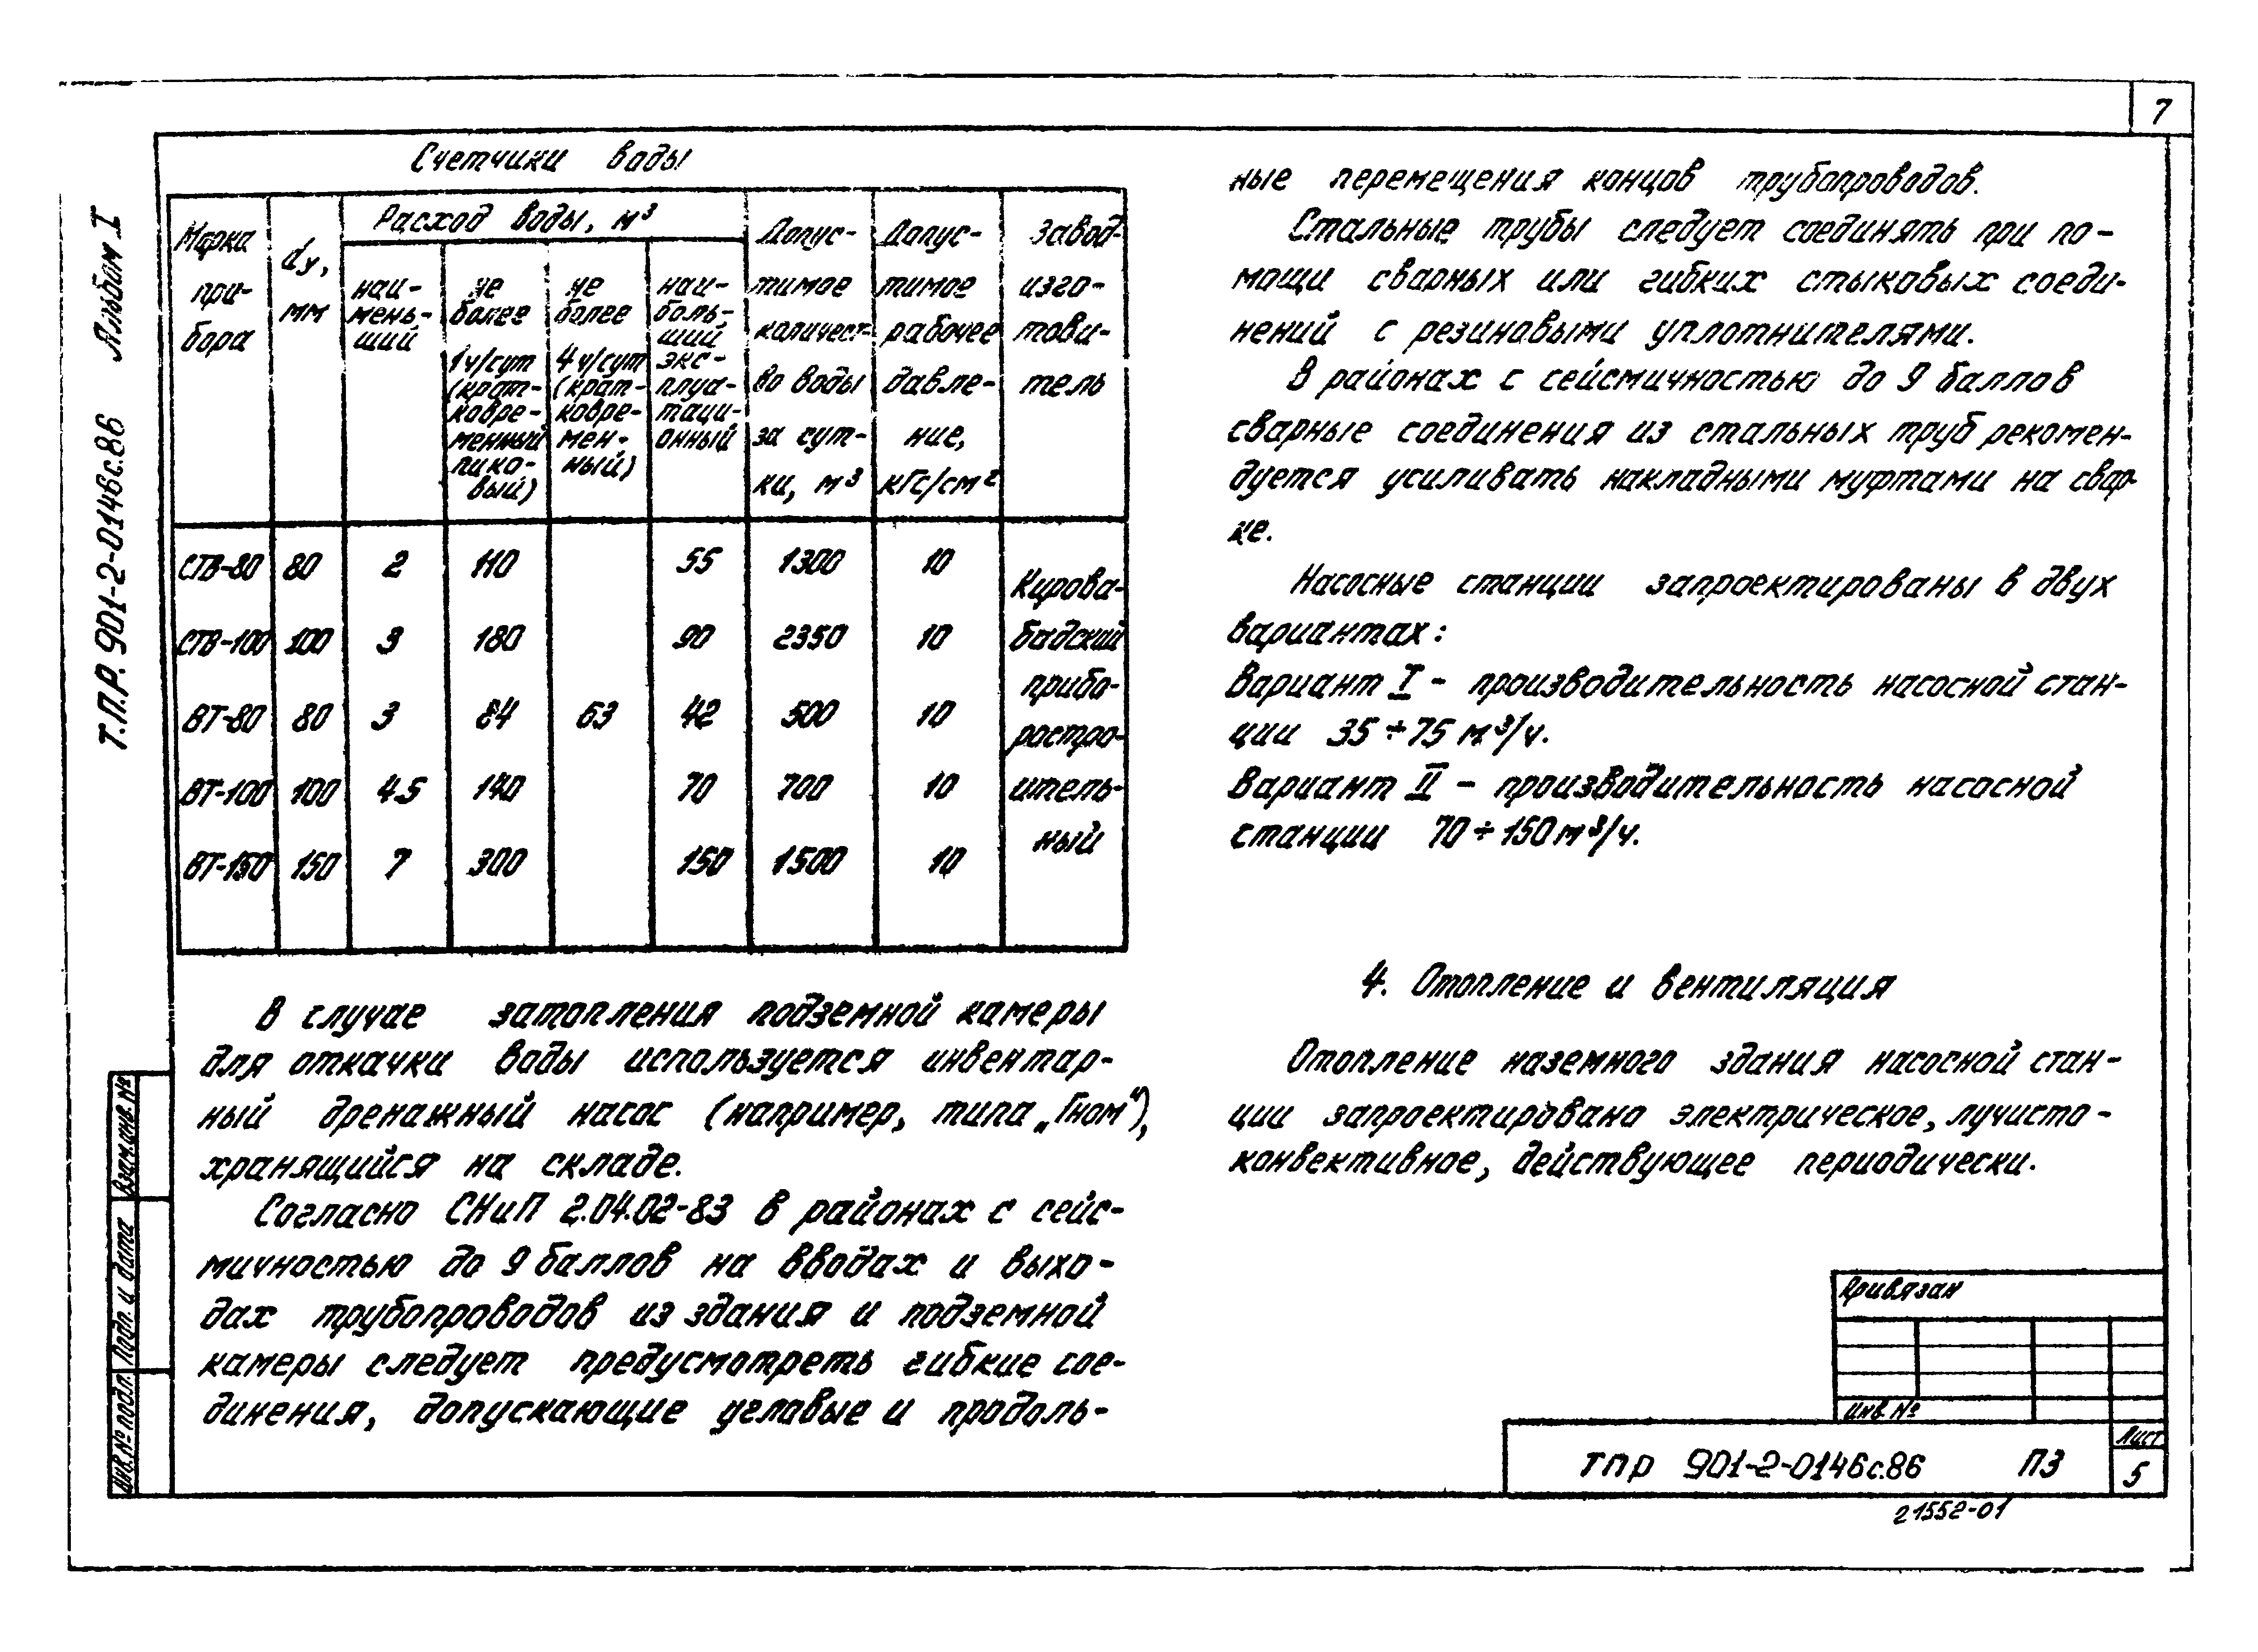 7
Альбом I
Т.П.Р. 901-2-0146с.86
Счетчики воды
Марка при- бора
dу, мм
Расход воды, м³
наи- мень- ший
не более 1ч/сут (крат- ковре- менный пико- вый)
не более 4ч/сут (крат- ковре- мен- ный)
наи- боль- ший экс- плуа- таци- онный
Допус- тимое количест- во воды за сут- ки, м³
Допус- тимое рабочее давле- ние, кГс/см²
Завод- изго- тови- тель
СТВ-80 80 2 110 55 1300 10
СТВ-100 100 3 180 90 2350 10
ВТ-80 80 3 84 63 42 500 10
ВТ-100 100 4.5 140 70 700 10
ВТ-150 150 7 300 150 1500 10
Кирова-
бадский
прибо-
ростро-
итель-
ный
В случае затопления подземной камеры
для откачки воды используется инвентар-
ный дренажный насос (например, типа „Гном"),
хранящийся на складе.
Согласно СНиП 2.04.02-83 в районах с сейс-
мичностью до 9 баллов на вводах и выхо-
дах трубопроводов из здания и подземной
камеры следует предусмотреть гибкие сое-
динения, допускающие угловые и продоль-
ные перемещения концов трубопроводов.
Стальные трубы следует соединять при по-
мощи сварных или гибких стыковых соеди-
нений с резиновыми уплотнителями.
В районах с сейсмичностью до 9 баллов
сварные соединения из стальных труб рекомен-
дуется усиливать накладными муфтами на свар-
ке.
Насосные станции запроектированы в двух
вариантах:
Вариант I - производительность насосной стан-
ции 35÷75 м³/ч.
Вариант II - производительность насосной
станции 70÷150м³/ч.
4. Отопление и вентиляция
Отопление наземного здания насосной стан-
ции запроектировано электрическое, лучисто-
конвективное, действующее периодически.
Взам.инв.№
Подп. и дата
Инв.№подл.
Привязан
Инв.№
тпр 901-2-0146с.86 ПЗ
Лист
5
21552-01